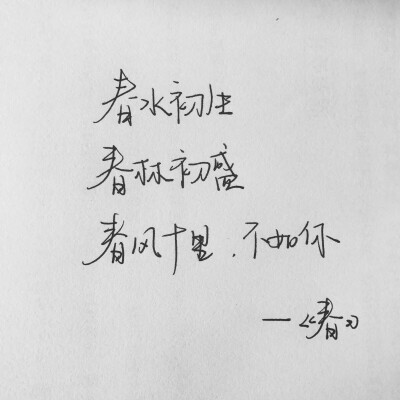 春水初生
春林初盛
春风十里，不如你
—《春》